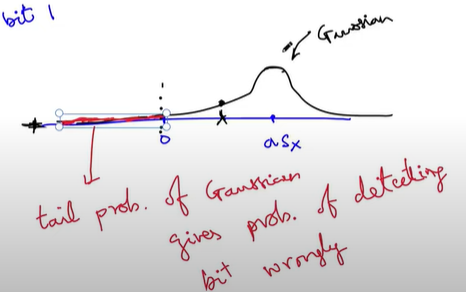 bit 1
Gaussian
x
0
asx
tail prob. of Gaussian
gives prob. of detecting
bit wrongly